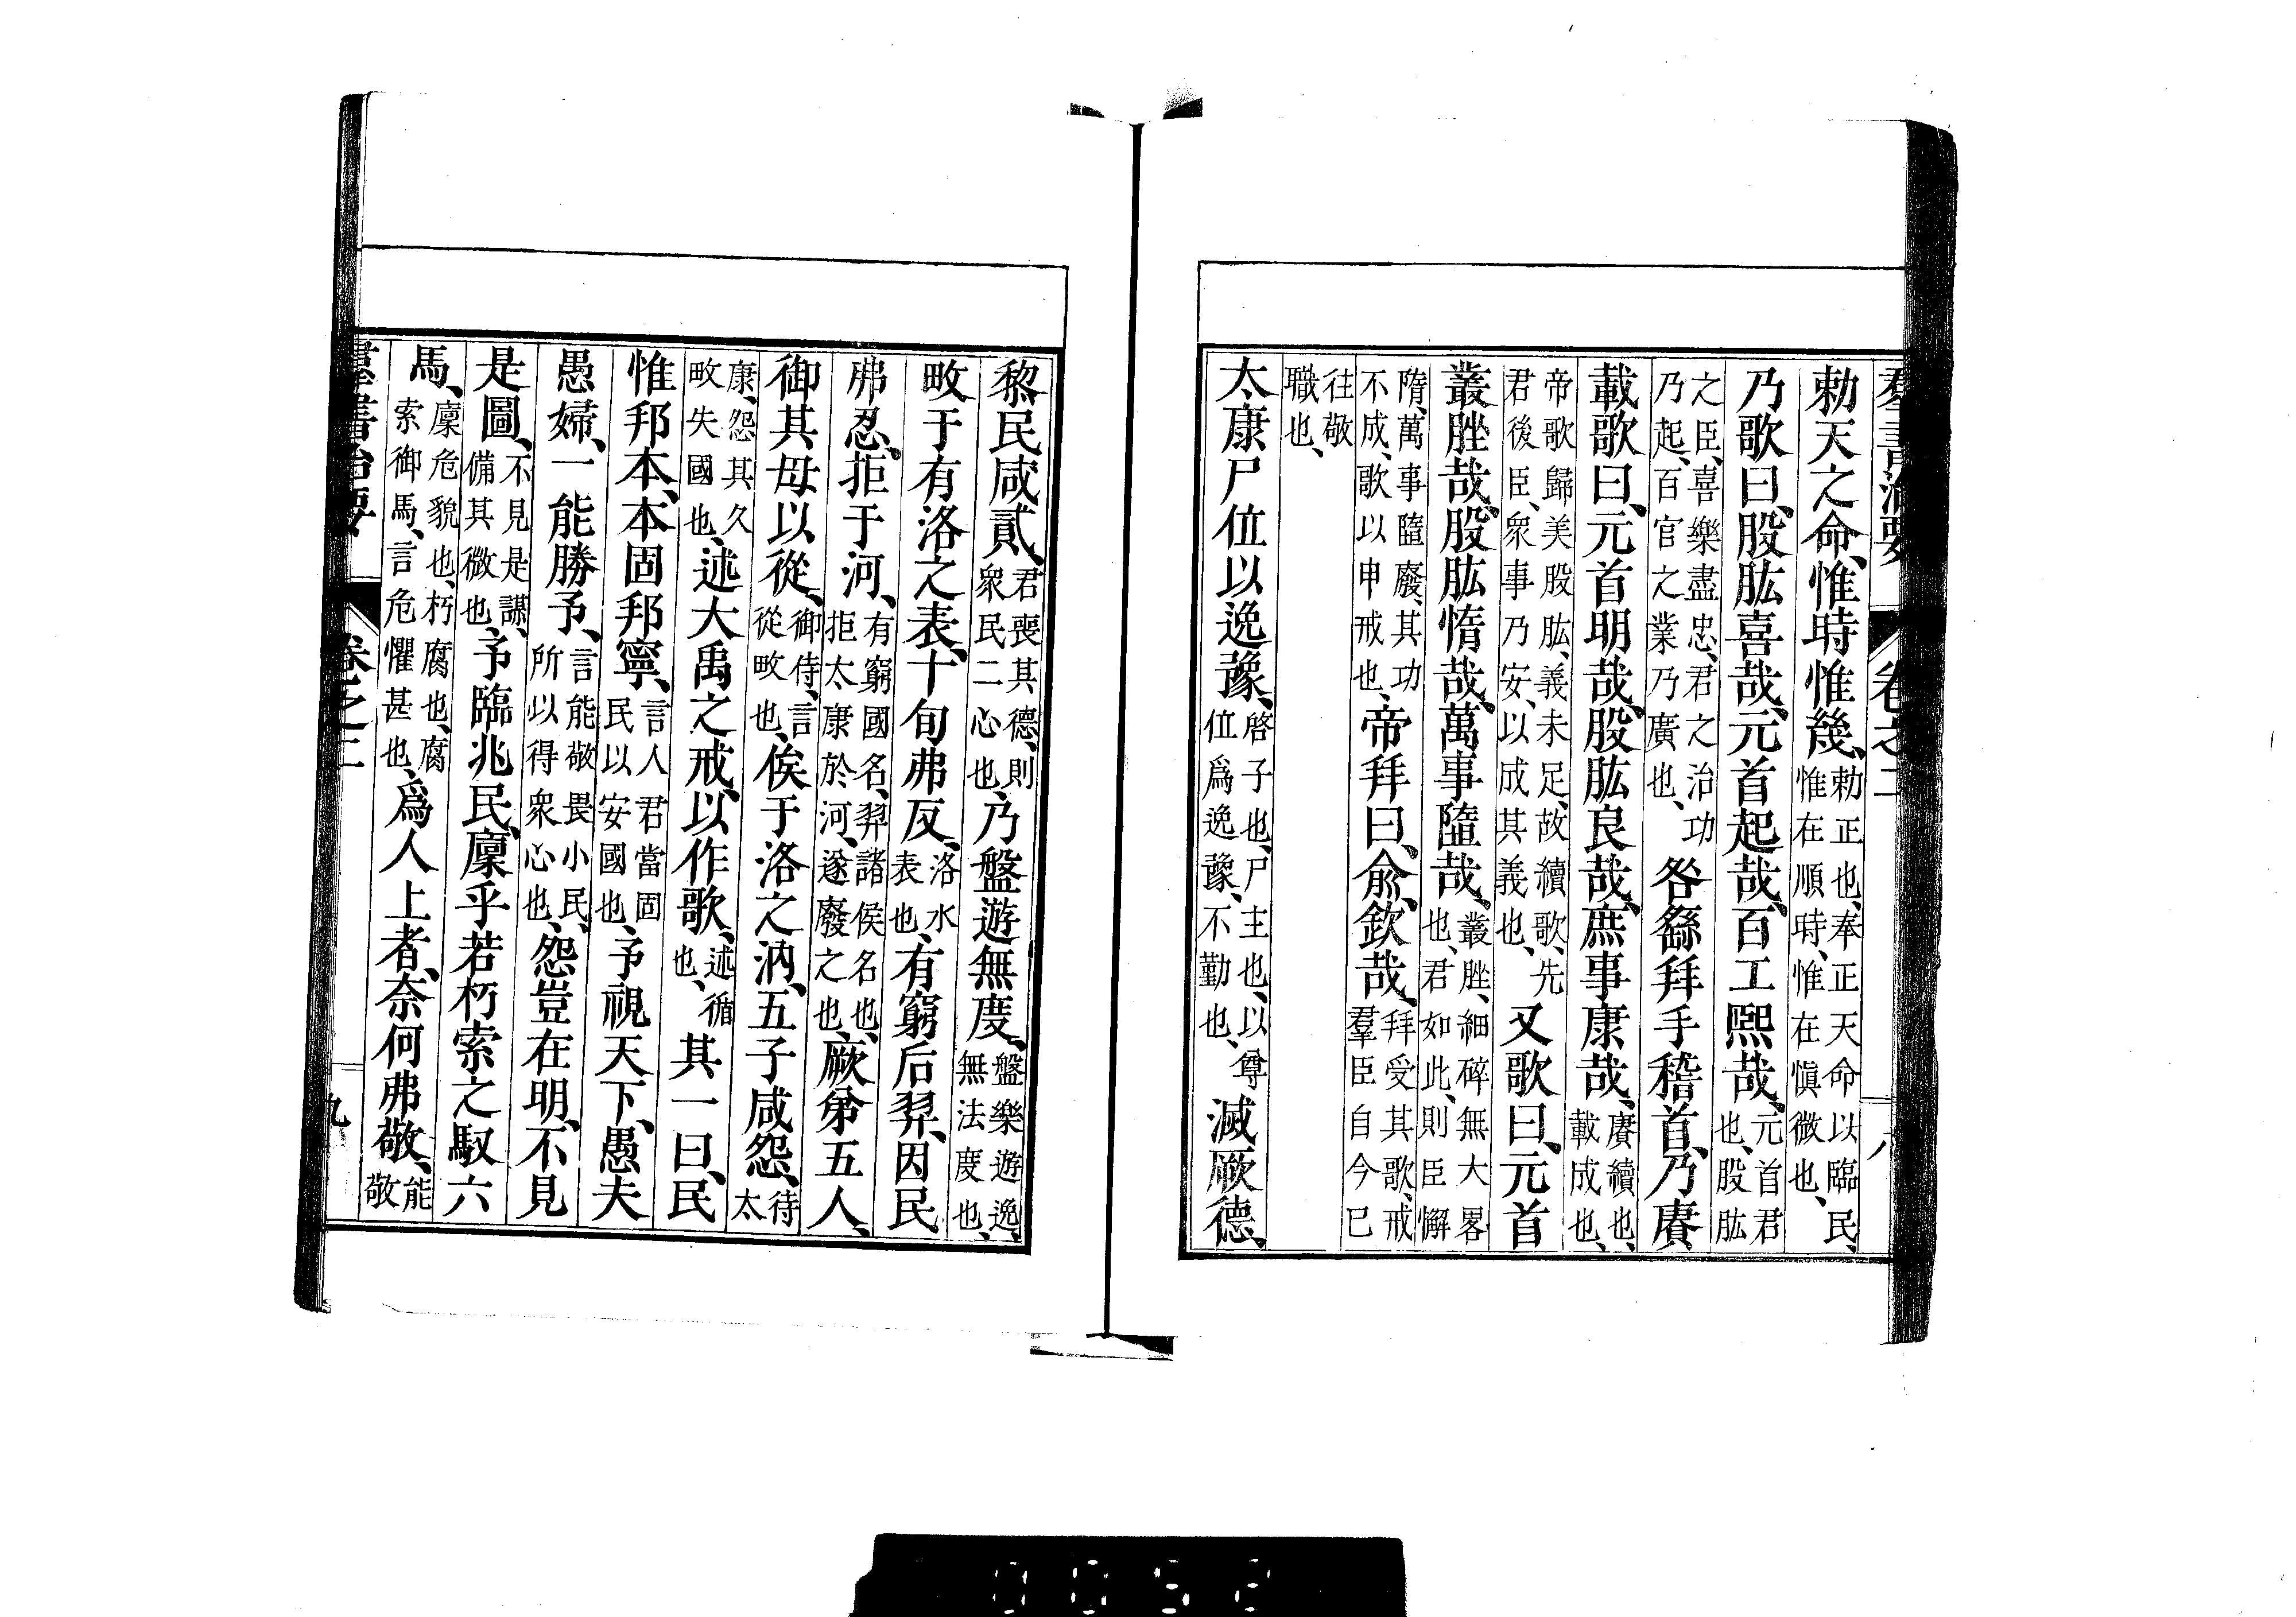 羣書治要 卷之二 八
勅天之命、惟時惟幾、勅正也、奉正天命以臨民、惟在順時、惟在愼微也、
乃歌曰、股肱喜哉、元首起哉、百工熙哉、元首君也、股肱
之臣、喜樂盡忠、君之治功乃起、百官之業乃廣也、咎繇拜手稽首、乃賡
載歌曰、元首明哉、股肱良哉、庶事康哉、賡續也、載成也、
帝歌歸美股肱、義未足、故續歌、先君後臣、衆事乃安、以成其義也、又歌曰、元首
叢脞哉、股肱惰哉、萬事隳哉、叢脞、細碎無大畧也、君如此、則臣懈
隋、萬事隳廢、其功不成、歌以申戒也、帝拜曰、兪、欽哉、拜受其歌、戒羣臣自今已
往敬職也、
太康尸位以逸豫、啓子也、尸主也、以尊位爲逸豫、不勤也、滅厥德、
黎民咸貳、君喪其德、則衆民二心也、乃盤遊無度、盤樂遊逸、無法度也、
畋于有洛之表、十旬弗反、洛水表也、有窮后羿、因民
弗忍、拒于河、有窮國名、羿諸侯名也、拒太康於河、遂廢之也、厥弟五人、
御其母以從、御侍、言從畋也、徯于洛之汭、五子咸怨、待太
康、怨其久畋失國也、述大禹之戒、以作歌、述循也、其一曰、民
惟邦本、本固邦寧、言人君當固民以安國也、予視天下、愚夫
愚婦、一能勝予、言能敬畏小民、所以得衆心也、怨豈在明、不見
是圖、不見是謀、備其微也、予臨兆民、廩乎若朽索之馭六
馬、廩危貌也、朽腐也、腐索御馬、言危懼甚也、爲人上者、奈何弗敬、能敬
羣書治要 卷之二 九